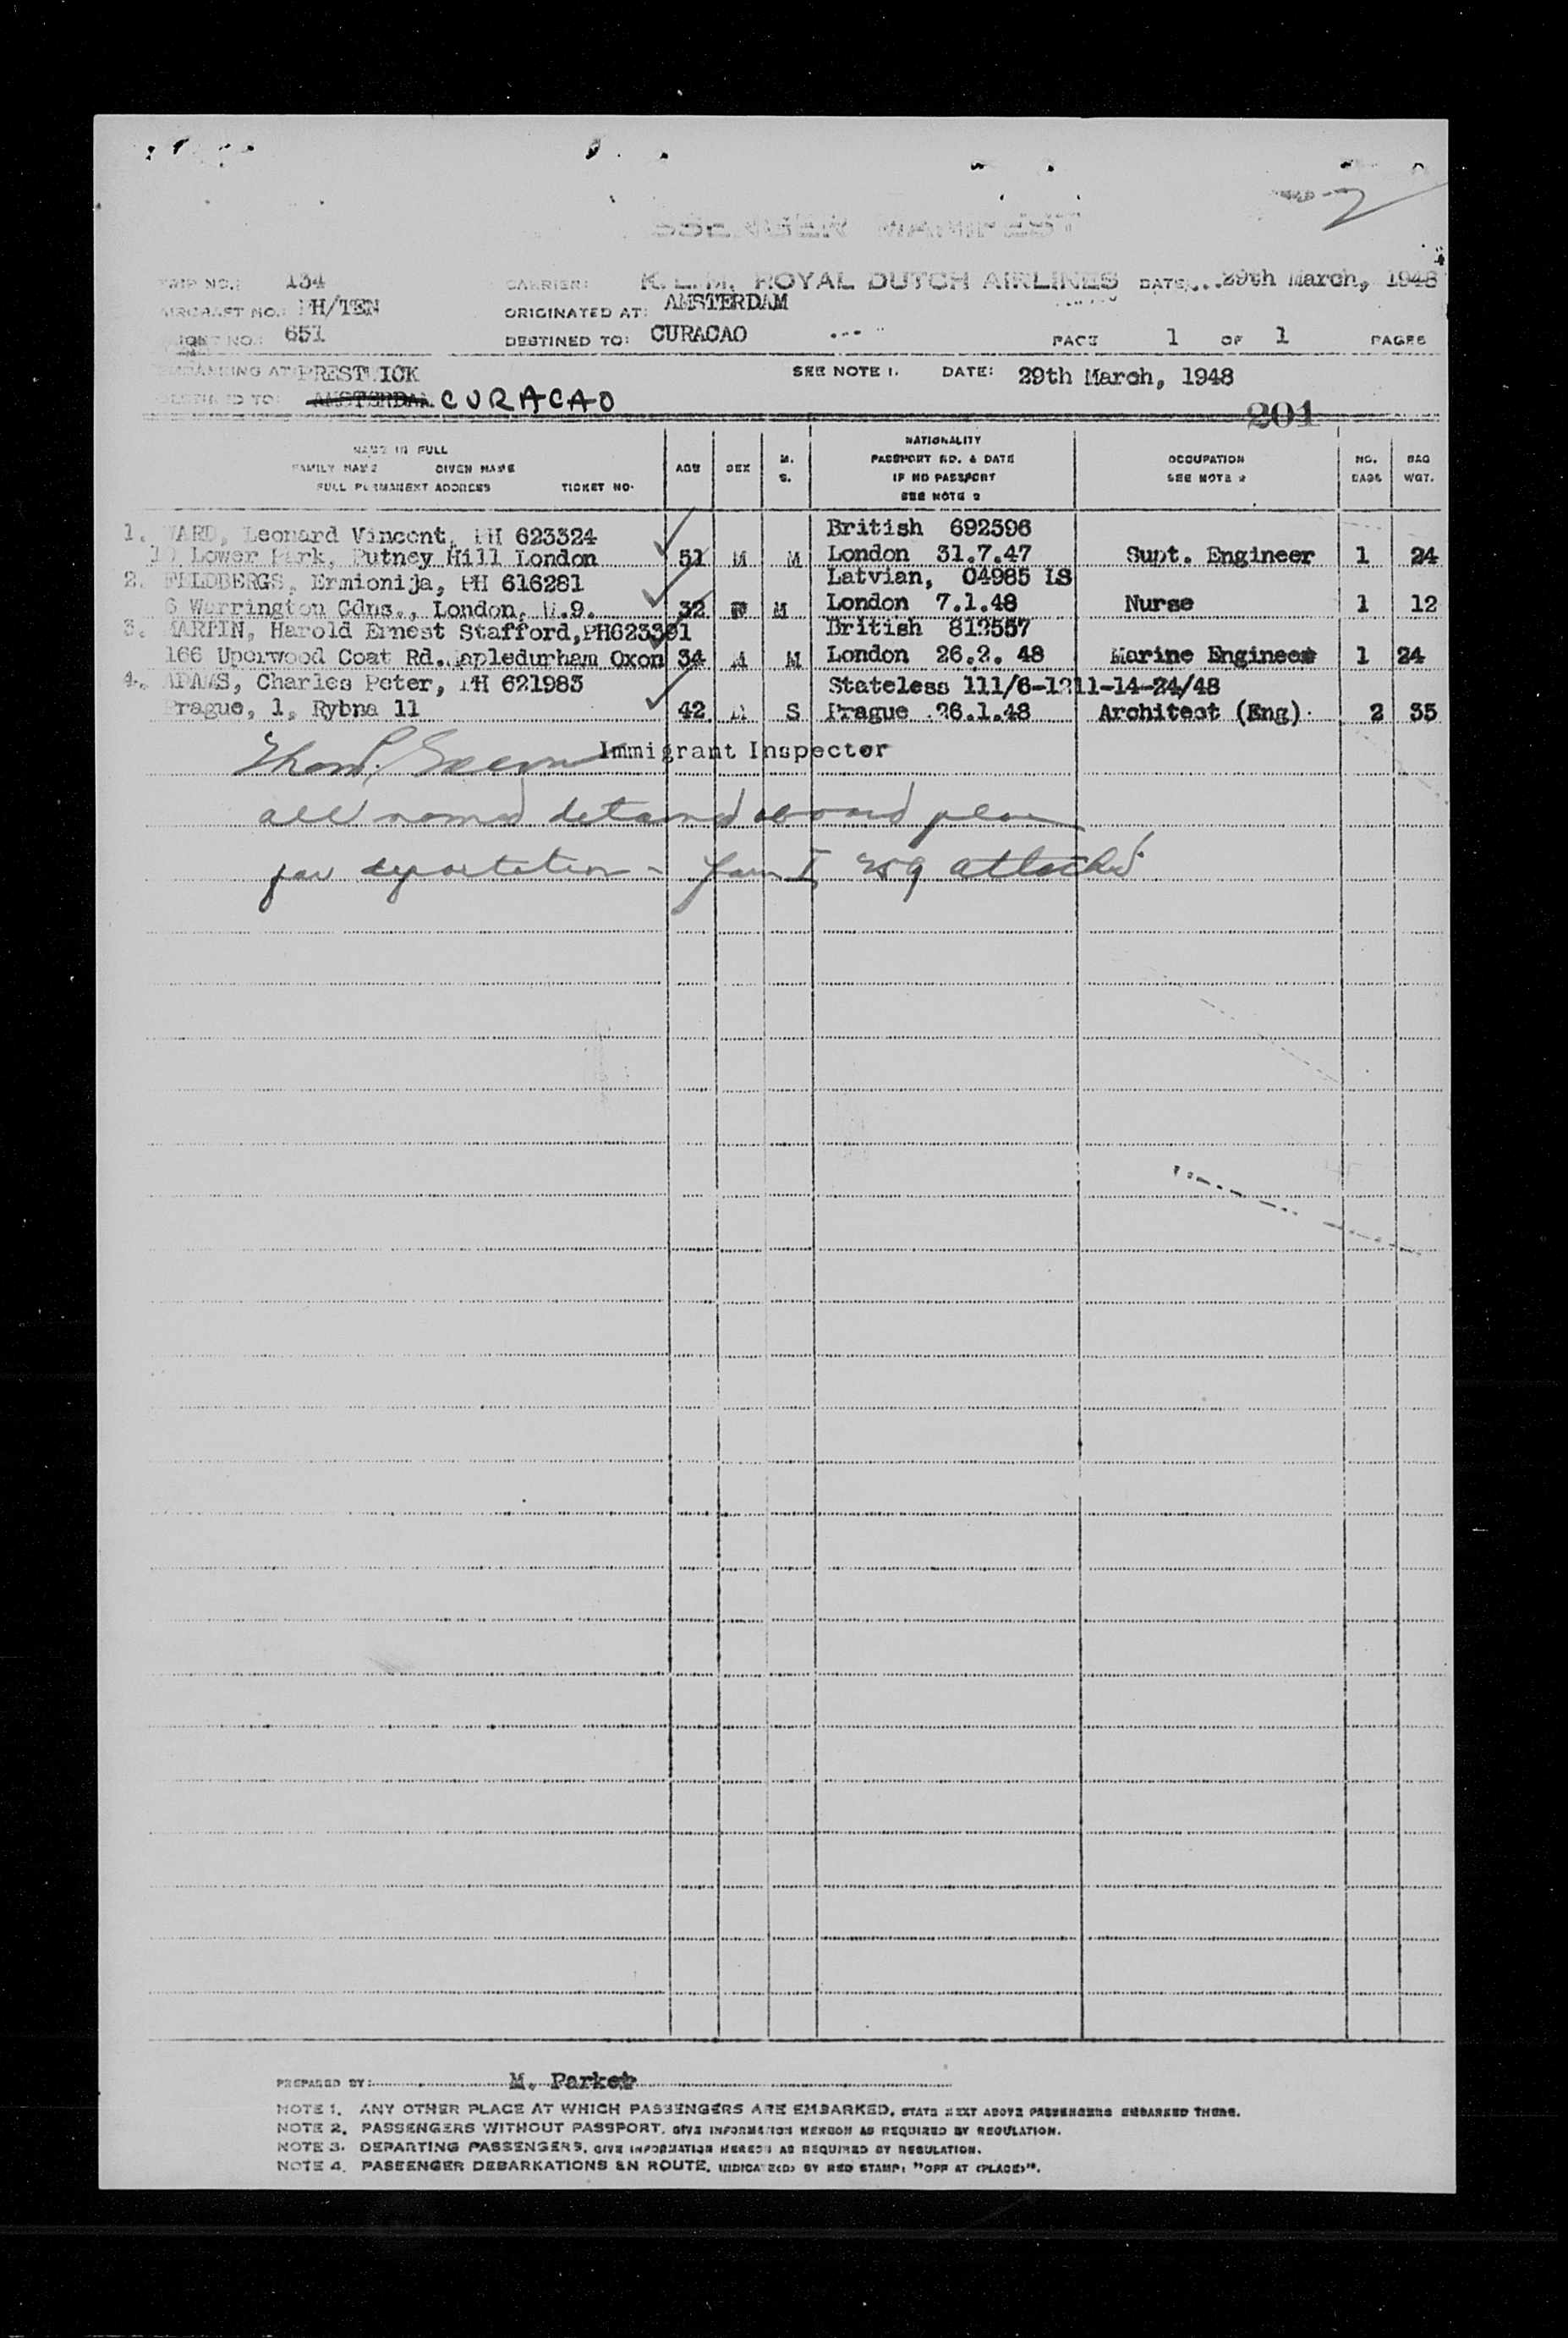 2
PASSENGER MANIFEST
TRIP NO.: 134 CARRIER: K.L.M. ROYAL DUTCH AIRLINES DATE 29th March, 1948
AIRCRAFT NO.: PH/TEN ORIGINATED AT: AMSTERDAM
FLIGHT NO.: 651 DESTINED TO: CURACAO PAGE 1 OF 1 PAGES
EMBARKING AT PRESTWICK SEE NOTE 1. DATE: 29th March, 1948
DESTINED TO: AMSTERDAM CURACAO
201
NAME IN FULL
FAMILY NAME GIVEN NAME
FULL PERMANENT ADDRESS TICKET NO.
AGE SEX M. S.
NATIONALITY
PASSPORT NO. & DATE
IF NO PASSPORT
SEE NOTE 2
OCCUPATION
SEE NOTE 2
NO. BAGS
BAG WGT.
1. WARD, Leonard Vincent, PH 623324 British 692596
Lower Park, Putney Hill London 51 M M London 31.7.47 Supt. Engineer 1 24
2. FELDBERGS, Ermionija, PH 616281 Latvian, 04985 IS
6 Warrington Gdns., London, W.9. 32 F M London 7.1.48 Nurse 1 12
3. MARTIN, Harold Ernest Stafford, PH623391 British 812557
166 Uperwood Coat Rd. Mapledurham Oxon 34 M M London 26.2. 48 Marine Engineer 1 24
4. ADAMS, Charles Peter, PH 621983 Stateless 111/6-1211-14-24/48
Prague, 1, Rybna 11 42 M S Prague 26.1.48 Architect (Eng) 2 35
Immigrant Inspector
all named detained aboard plane
for deportation - Form I 259 attached
PREPARED BY: M. Parker
NOTE 1. ANY OTHER PLACE AT WHICH PASSENGERS ARE EMBARKED, STATE NEXT ABOVE PASSENGERS EMBARKED THERE.
NOTE 2. PASSENGERS WITHOUT PASSPORT, GIVE INFORMATION HEREON AS REQUIRED BY REGULATION.
NOTE 3. DEPARTING PASSENGERS, GIVE INFORMATION HEREON AS REQUIRED BY REGULATION.
NOTE 4. PASSENGER DEBARKATIONS EN ROUTE, INDICATE(D) BY RED STAMP: "OFF AT (PLACE)".